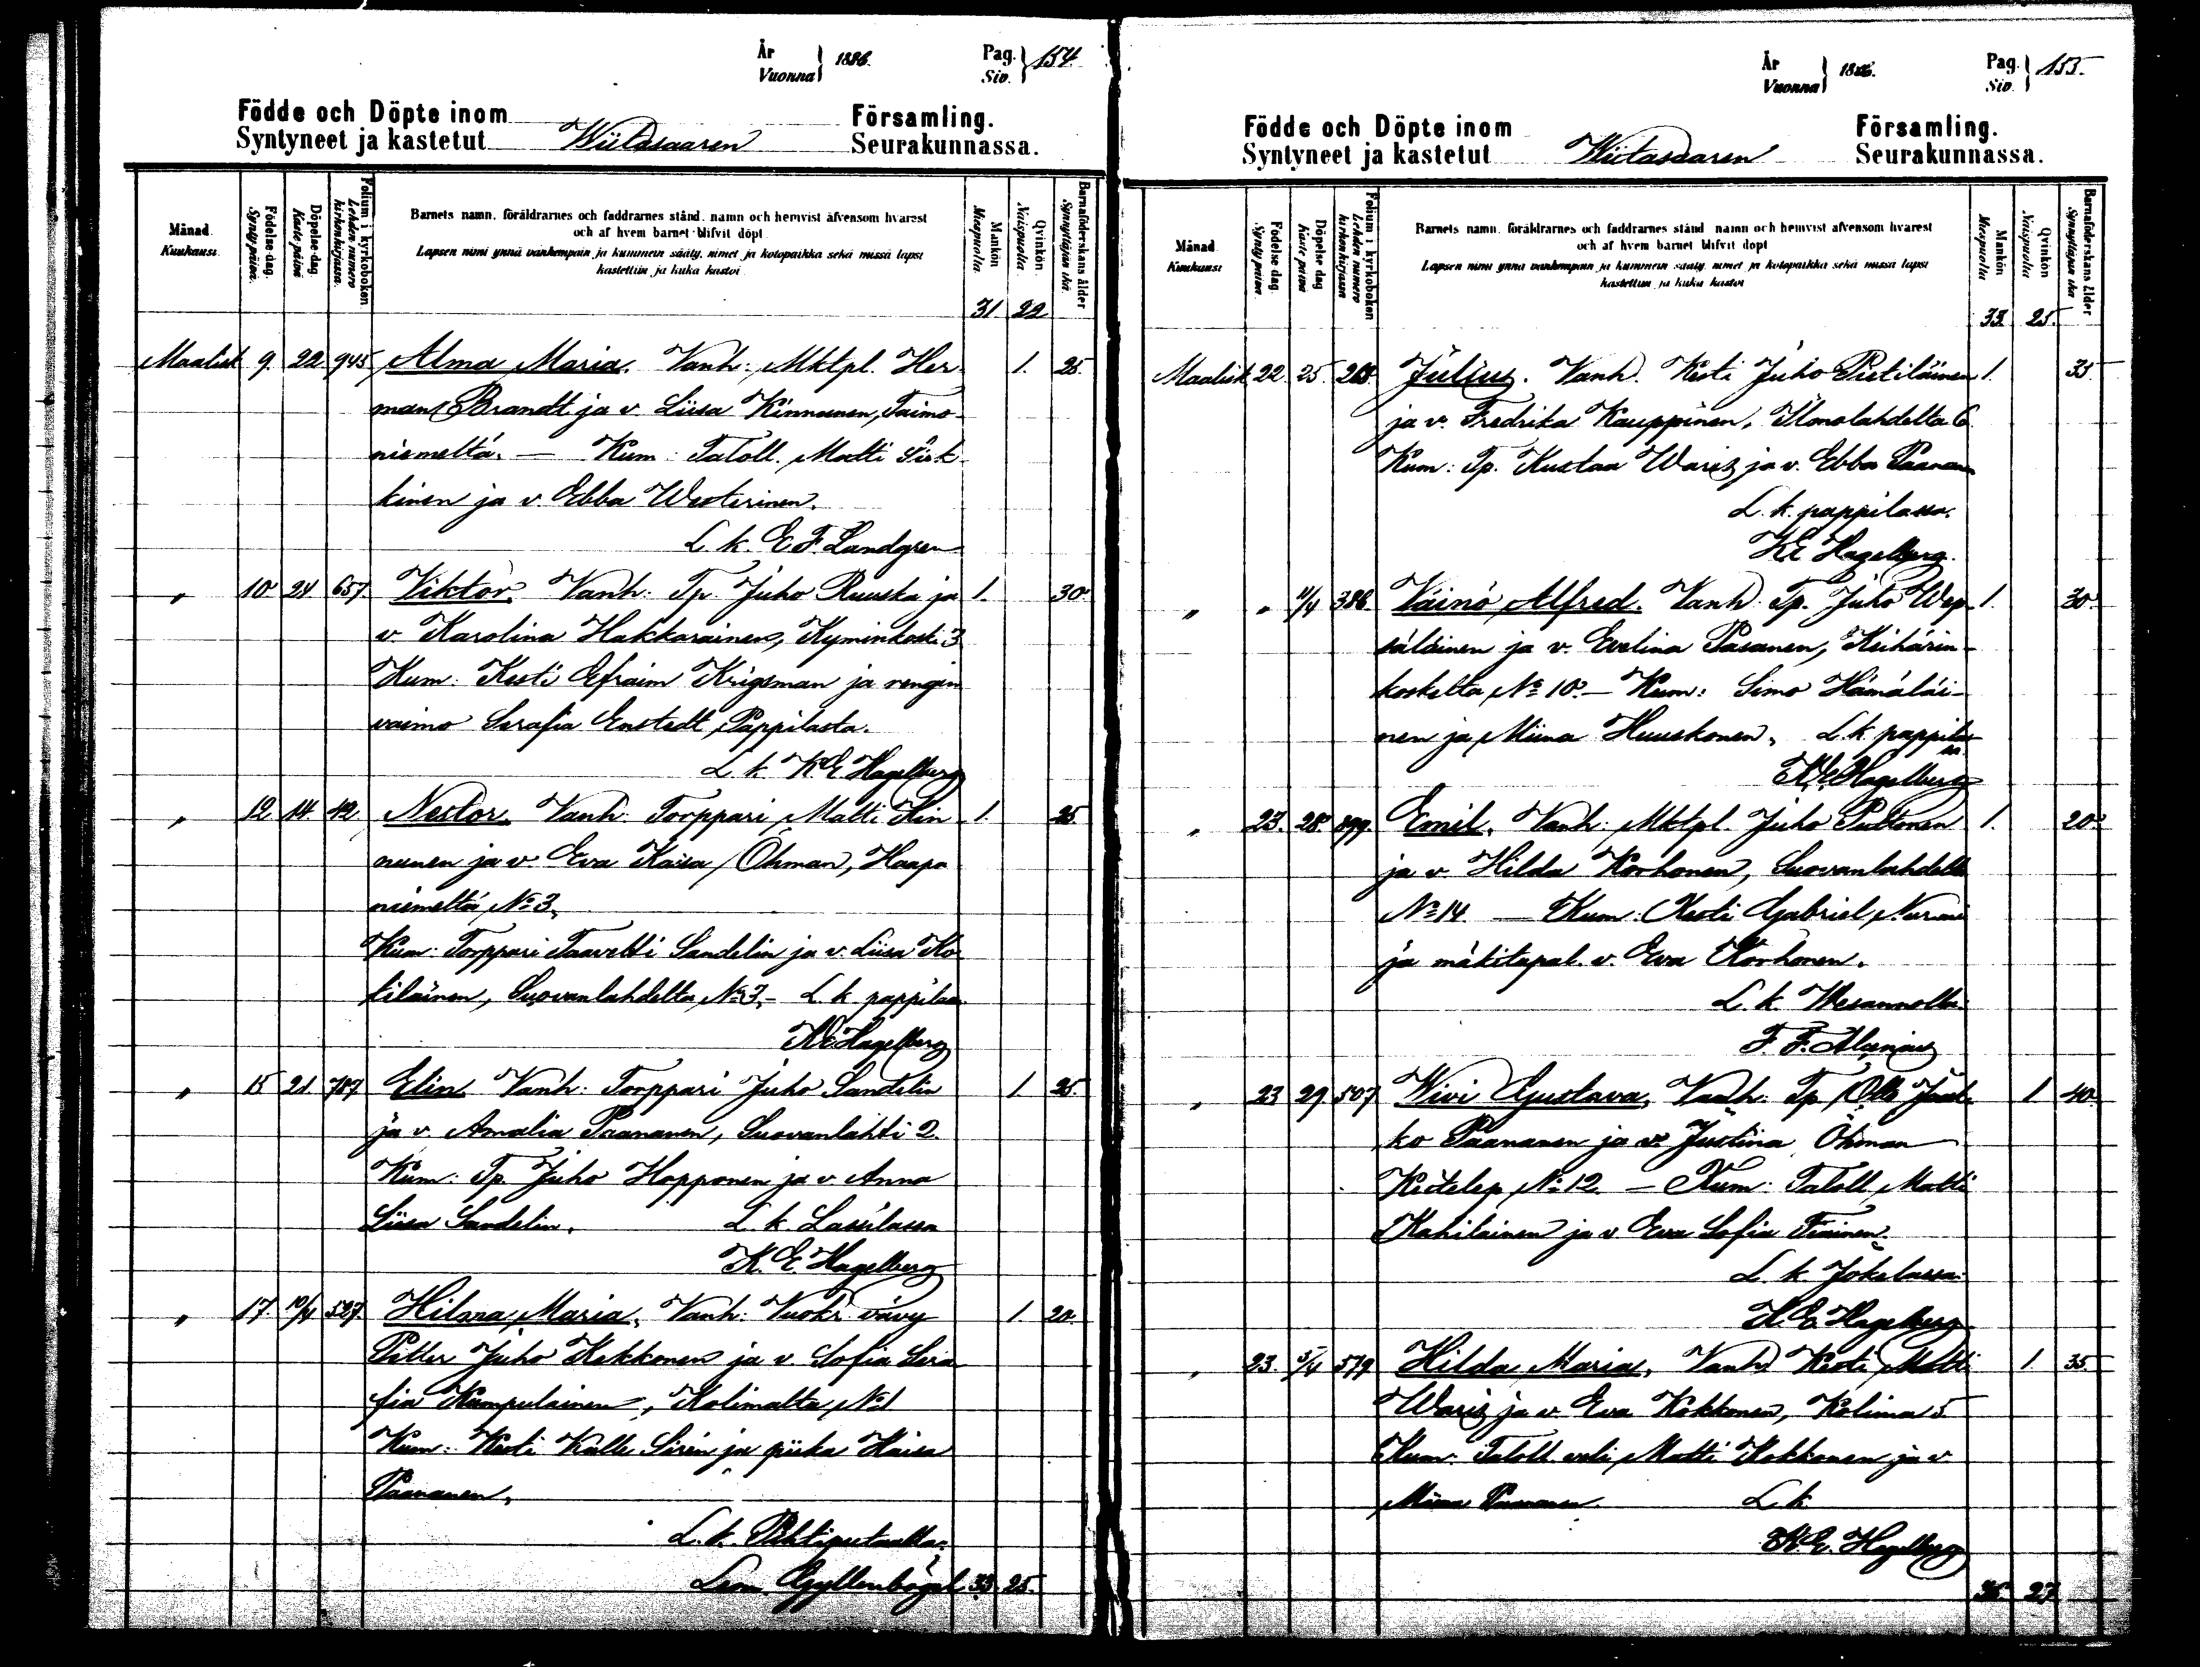 År
Vuonna } 1886.
Pag.
Siv. } 154.
Födde och Döpte inom Församling.
Syntyneet ja kastetut Wiitasaaren Seurakunnassa.
Månad
Kuukausi.
Födelse-dag.
Synty-päivä.
Döpelse-dag
Kaste päivä
Folium i kyrkoboken
Lehden numero
kirkonkirjassa.
Barnets namn, föräldrarnes och faddrarnes stånd, namn och hemvist äfvensom hvarest
och af hvem barnet blifvit döpt.
Lapsen nimi ynnä vanhempain ja kummein sääty, nimet ja kotopaikka sekä missä lapsi
kastettiin ja kuka kastoi
Mankön
Miespuolia
Qvinkön
Naispuolia
Barnaföderskans ålder
Synnyttäjän ikä
31 22
Maalisk 9. 22 945 Alma Maria. Vanh: Mktpl. Her- 1. 25.
man Brandt ja v. Liisa Kinnunen, Taimo-
niemeltä. — Kum: Taloll. Matti Sisk-
kinen ja v. Ebba Westerinen.
L. k. E F. Landgren
" 10 24 657. Viktor. Vanh: Tp. Juho Ruuska ja 1. 30.
v. Karolina Hakkarainen, Kyminkoski 3
Kum. Kesti Efraim Krigsman ja rengin
vaimo Serafia Enstedt, Pappilasta.
L. k K E Hagelberg
" 12 14. 42 Nestor. Vanh. Torppari Matti Kin- 1. 25.
nunen ja v. Eva Kaisa Öhman, Haapa
niemeltä No 3.
Kum: Torppari Taavetti Sandelin ja v. Liisa Ko-
tilainen, Suovanlahdelta No 3. – L. k. pappilas
K E Hagelberg
" 15 21. 787 Elin Vanh: Torppari Juho Sandelin 1 25.
ja v. Amalia Paananen, Suovanlahti 2.
Kum: Tp. Juho Hopponen ja v. Anna
Liisa Sandelin. L. k. Lassilassa
K. E. Hagelberg
" 17. 10/4 527. Hilma Maria, Vanh: Vuokr vävy 1. 20.
Petter Juho Kekkonen ja v. Sofia Sera
fia Kumpulainen, Kolimalta No 1
Kum: Kesti Kalle Sirén ja piika Kaisa
Paananen.
L. k. Pihtiputaalla.
Leon. Gyllenbögel 33 25.
År
Vuonna } 1886.
Pag.
Siv. } 155.
Födde och Döpte inom Församling.
Syntyneet ja kastetut Wiitasaaren Seurakunnassa.
Månad
Kuukausi
Födelse dag
Synty päivä
Döpelse dag
Kaste päivä
Folium i kyrkoboken
Lehden numero
kirkonkirjassa
Barnets namn, föräldrarnes och faddrarnes stånd namn och hemvist äfvensom hvarest
och af hvem barnet blifvit döpt
Lapsen nimi ynnä vanhempain ja kummein sääty, nimet ja kotopaikka sekä missä lapsi
kastettiin ja kuka kastoi
Mankön
Miespuolia
Qvinkön
Naispuolia
Barnaföderskans ålder
Synnyttäjän ikä
33. 25.
Maalisk 22 25. 268. Julius. Vanh. Kesti Juho Pietiläinen 1. 35.
ja v. Fredrika Kauppinen, Ilmolahdelta 6.
Kum: Tp. Kustaa Waris ja v. Ebba Paananen
L. k. pappilassa.
K E Hagelberg.
" " 11/4 386 Väinö Alfred. Vanh. Tp. Juho Wep- 1. 30.
säläinen ja v. Evelina Pasanen, Keihärin-
koskelta No 10. – Kum: Simo Hämäläi-
nen ja Miina Huuskonen. L. k. pappilas
sa.
K. E. Hagelberg
" 23. 28. 899. Emil. Vanh: Mktpl. Juho Puttonen 1. 20.
ja v. Hilda Korhonen, Suovanlahdelta
No 14. — Kum: Kesti Gabriel Nurmi
ja mäkitupal. v. Eva Korhonen.
L. k. Wesannolla.
" 23 29 507 Wivi Gustava, Vanh: Tp. Otto Jaak- 1. 40.
ko Paananen ja v. Justiina Öhman
Keitelep No 12. – Kum: Taloll. Matti
Kahilainen ja v. Eva Sofia Tiainen.
L. k. Jokelassa.
K. E. Hagelberg
" 23. 5/4 579 Hilda Maria, Vanh. Kesti Matti 1. 35.
Waris ja v. Eva Kokkonen, Kolima 5
Kum. Taloll. veli Matti Kokkonen ja v.
Miina Paananen. L. k.
K. E. Hagelberg
36. 27